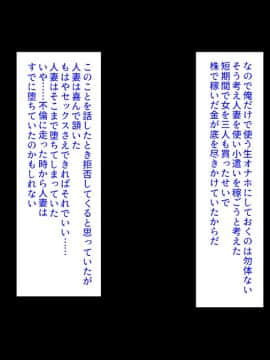 なので俺だけで使う生オナホにしておくのは勿体ない
そう考え人妻を使い小遣いを稼ごうと考えた
短期間で女を三人も買ったせいで
株で稼いだ金が底を尽きかけていたからだ
このことを話したとき拒否してくると思っていたが
人妻は喜んで頷いた
もはやセックスさえできればそれでいい……
人妻はそこまで堕ちてしまっていた
いや……不倫に走った時から人妻は
すでに堕ちていたのかもしれない